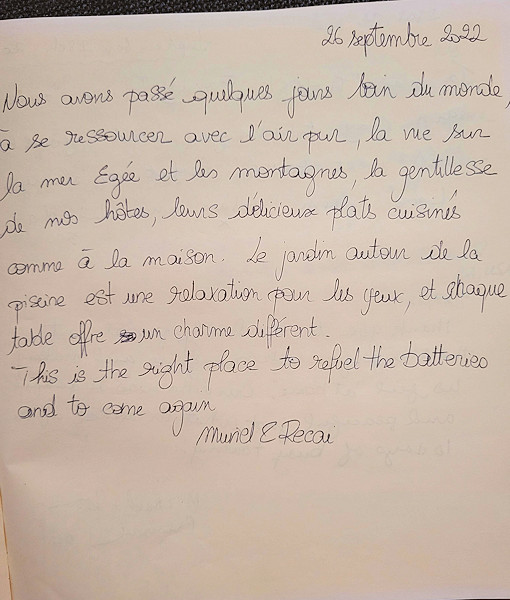 26 septembre 2022
Nous avons passé quelques jours loin du monde,
à se ressourcer avec l'air pur, la vue sur
la mer Egée et les montagnes, la gentillesse
de nos hôtes, leurs délicieux plats cuisinés
comme à la maison. Le jardin autour de la
piscine est une relaxation pour les yeux, et chaque
table offre un charme différent.
This is the right place to refuel the batteries
and to come again
Muriel & Recai